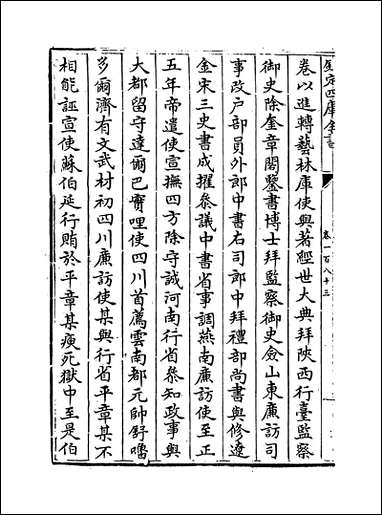 欽定四庫全書
卷一百八十三
卷以進轉藝林庫使與著經世大典拜陜西行臺監察
御史除奎章閣鑒書博士拜監察御史僉山東廉訪司
事改戶部員外郎中書右司郎中拜禮部尚書與修遼
金宋三史書成擢叅議中書省事調燕南廉訪使至正
五年帝遣使宣撫四方除守誠河南行省叅知政事與
大都留守達爾巴實哩使四川首薦雲南都元帥舒嚕
多爾濟有文武材初四川廉訪使某與行省平章某不
相能誣宣使蘇伯延行賄於平章某瘐死獄中至是伯